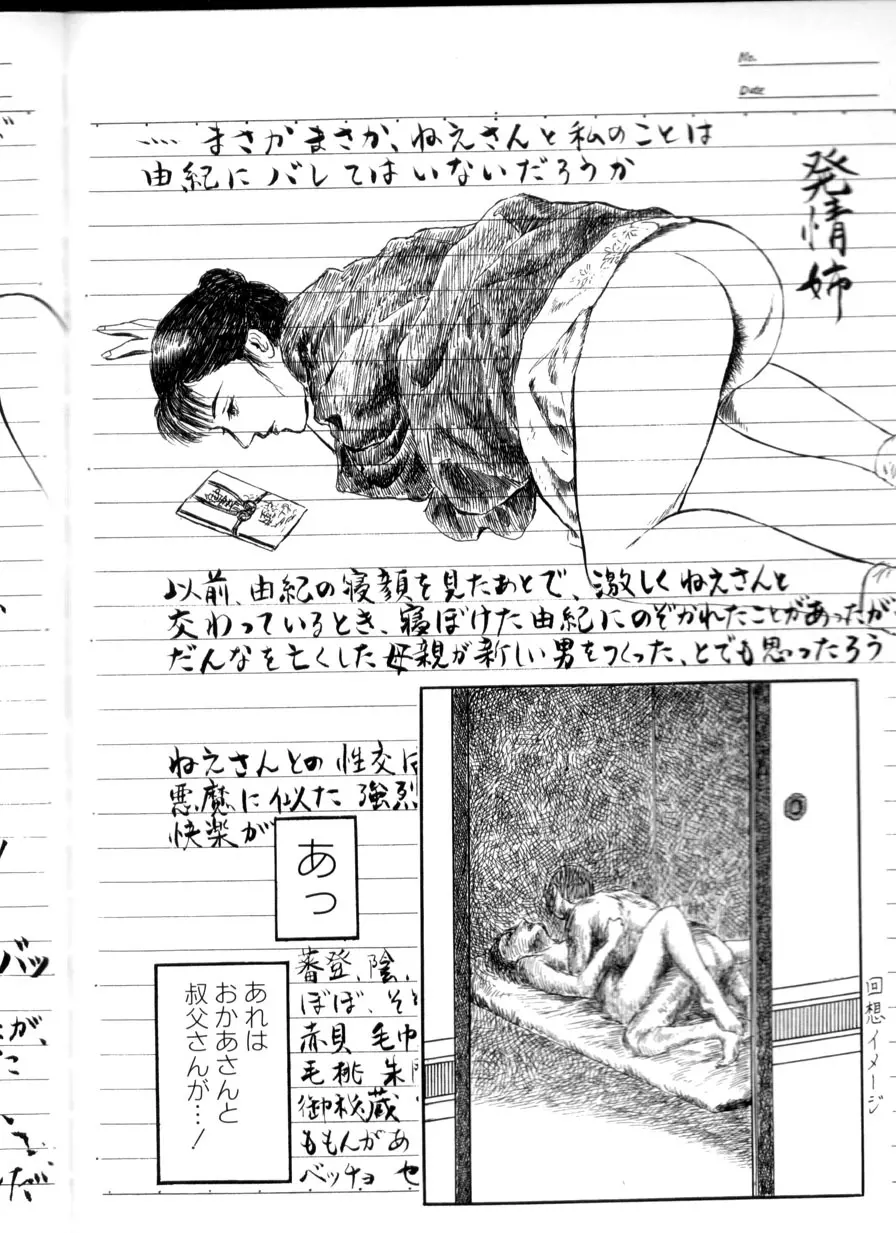 No.
Date
…… まさかまさか、ねえさんと私のことは
由紀にバレてはいないだろうか
発情姉
以前、由紀の寝顔を見たあとで、激しくねえさんと
交わっているとき、寝ぼけた由紀にのぞかれたことがあったが
だんなを亡くした母親が新しい男をつくった、とでも思ったろう
ねえさんとの性交は
悪魔に似た強烈
快楽が
あっ
あれは
おかあさんと
叔父さんが…！
蕃登、陰、
ぼぼ、そ
赤貝 毛巾
毛桃 朱門
御秘蔵
ももんがあ
ベッチョ セ
回想イメージ
バッ
が、